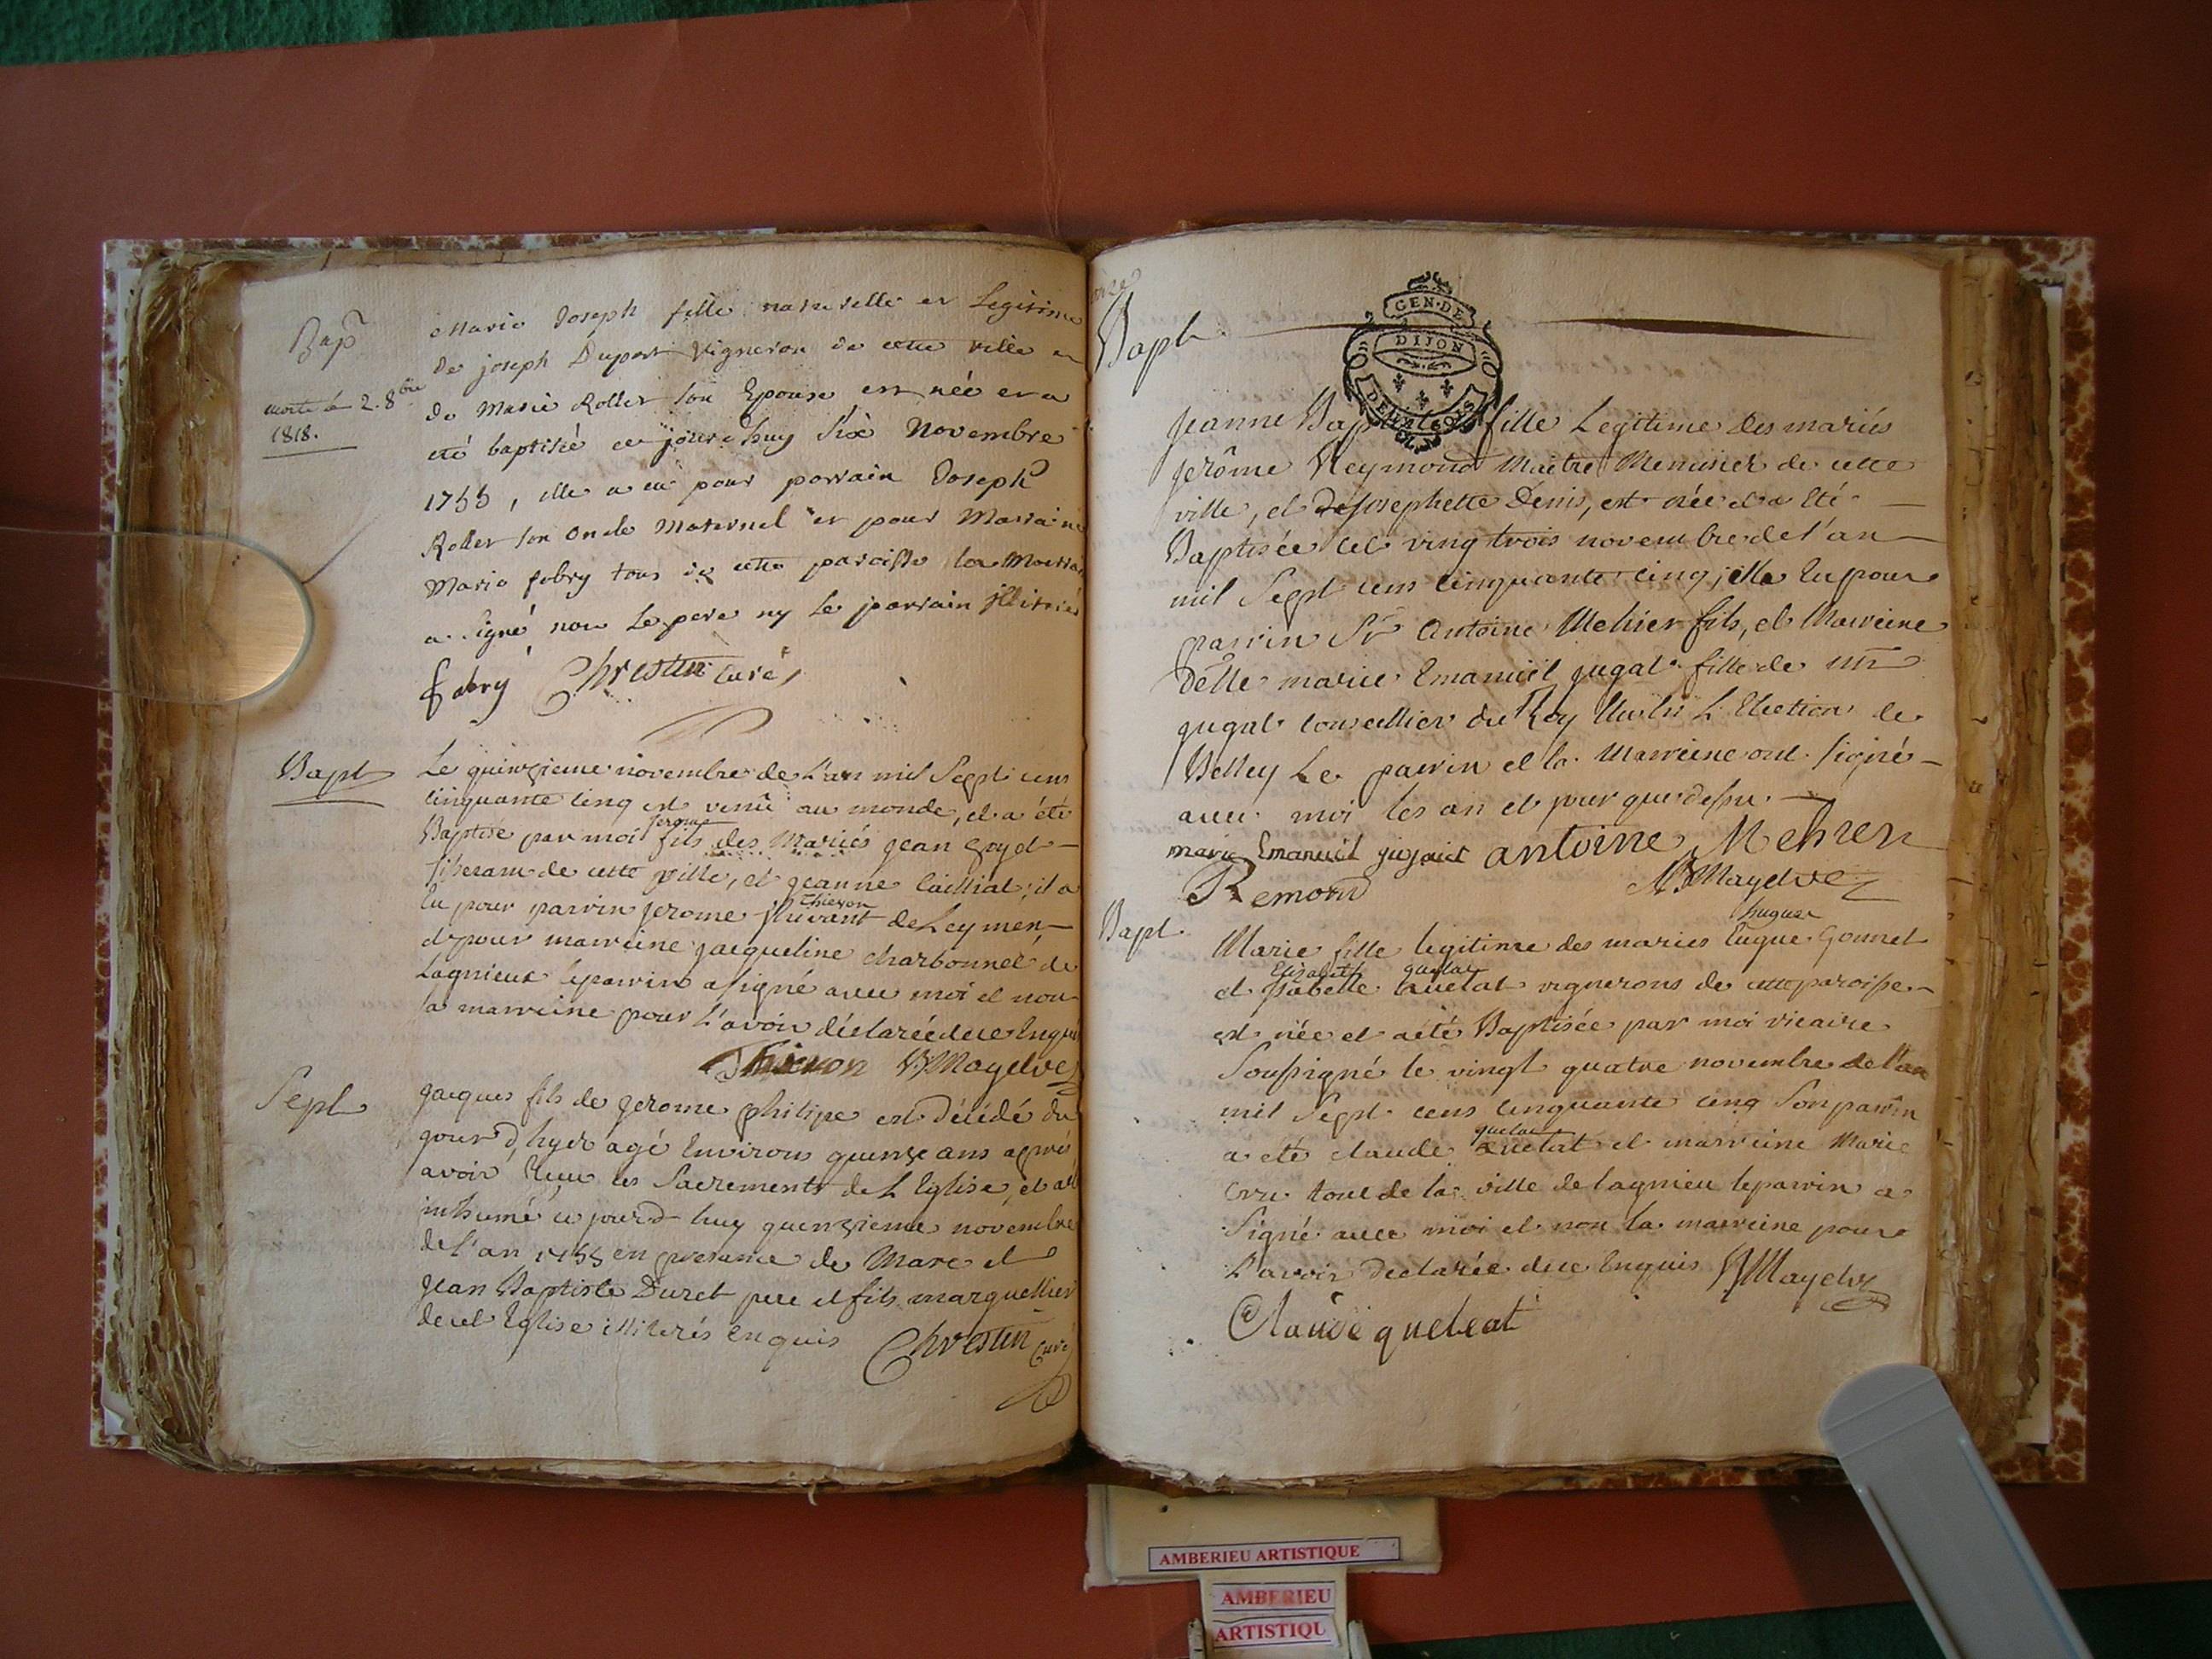 Bap
morte le 2. 8bre
1818.
Marie Joseph fille naturelle et Legitime
de joseph Duport Vigneron de cette ville et
de Marie Rollet son Epouse est née et a
eté baptisée ce jourd'huy six Novembre
1755, elle a eu pour parrain Joseph
Rollet son oncle maternel et pour Marraine
Marie fabry tous de cette paroisse la Marraine
a signé non le pere ny le parrain illiterés
fabry Chrestin curé
Bapt
Le quinzieme novembre de L'an mil Sept cens
cinquante cinq est venû au monde, et a été
Baptisé par moi jerome fils des Mariés jean goyet
tisseran de cette ville, et jeanne Cailliat; il a
Eu pour parrin jerome Thievon de Leymen,
et pour marreine jacqueline charbonnet de
Lagnieux le parrin a signé avec moi et non
la marreine pour L'avoir déclarée de ce Enquis
Thievon Magdve
Sept
jacques fils de jerome philipe est décédé du
jour d'hyer agé Environs quenze ans aprés
avoir Reçu les Sacrements de L'Eglise, et a été
inhumé ce jourd'huy quenzieme novembre
de l'an 1755 en presence de Marc et
jean Baptiste Duret pere et fils marguellier
de cet Eglise illiterés enquis Chrestin curé
GEN. DE
DIJON
Bapt
jeanne Baptiste fille Legitime des mariés
jerôme Reymond Maitre Menusier de cette
ville, et de josephette Denis, est née et a Eté
Baptisée cel vingt trois novembre de l'an
mil Sept cens cinquante cinq; elle Eu pour
parrin Sr Antoine Mehier fils, et Marreine
Delle marie Emanuël jugat fille de mr
jugat conseillier du Roy En L'Election de
Belley Le parrin et la Marreine ont signé
avec moi les an et jour que dessu.
marie Emanuël jujait antoine Mehier
Remond Magdve
Bapt.
hugue
Marie fille legitime des maries Eugue Gonnet
Elisabeth quelat
et Isabelle Cuetat vignerons de cette paroisse
est née et a été Baptisée par moi vicaire
Soussigné le vingt quatre novembre de l'an
mil Sept cens cinquante cinq Son parrin
quelat
a été claude Cuetat et marreine Marie
tout de la ville de lagnieu le parrin a
Signé avec moi et non la marreine pour
L'avoir declarée de ce Enquis Magdve
Claude queleat
AMBERIEU ARTISTIQUE
AMBERIEU
ARTISTIQU